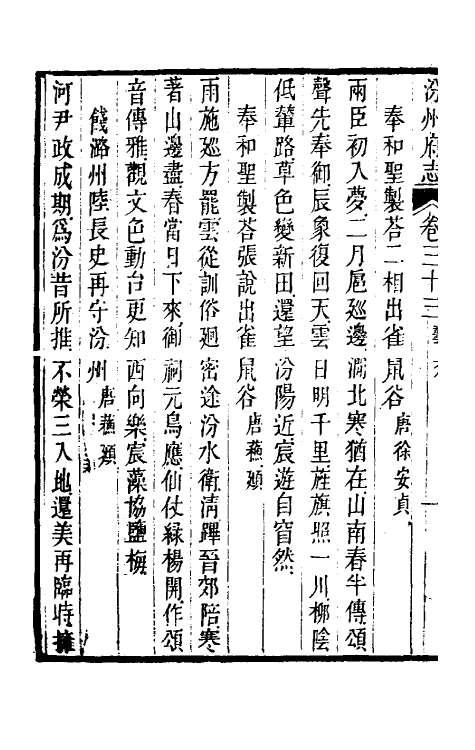 汾州府志 卷三十三 藝文
奉和聖製荅二相出雀鼠谷 唐徐安貞
兩臣初入夢二月扈廵邊 澗北寒猶在山南春半傳頌
聲先奉御辰象復回天雲 日明千里旌旗照一川柳陰
低輦路草色變新田還望 汾陽近宸遊自窅然
奉和聖製荅張說出雀鼠谷 唐蘇頲
雨施廵方罷雲從訓俗廻 密途汾水衛淸蹕晉郊陪寒
著山邊盡春當日下來御 祠元鳥應仙仗緑楊開作頌
音傳雅觀文色動台更知 西向樂宸藻協鹽梅
餞潞州陸長史再守汾州 唐蘇頲
河尹政成期為汾昔所推 不榮三入地還美再臨時擁